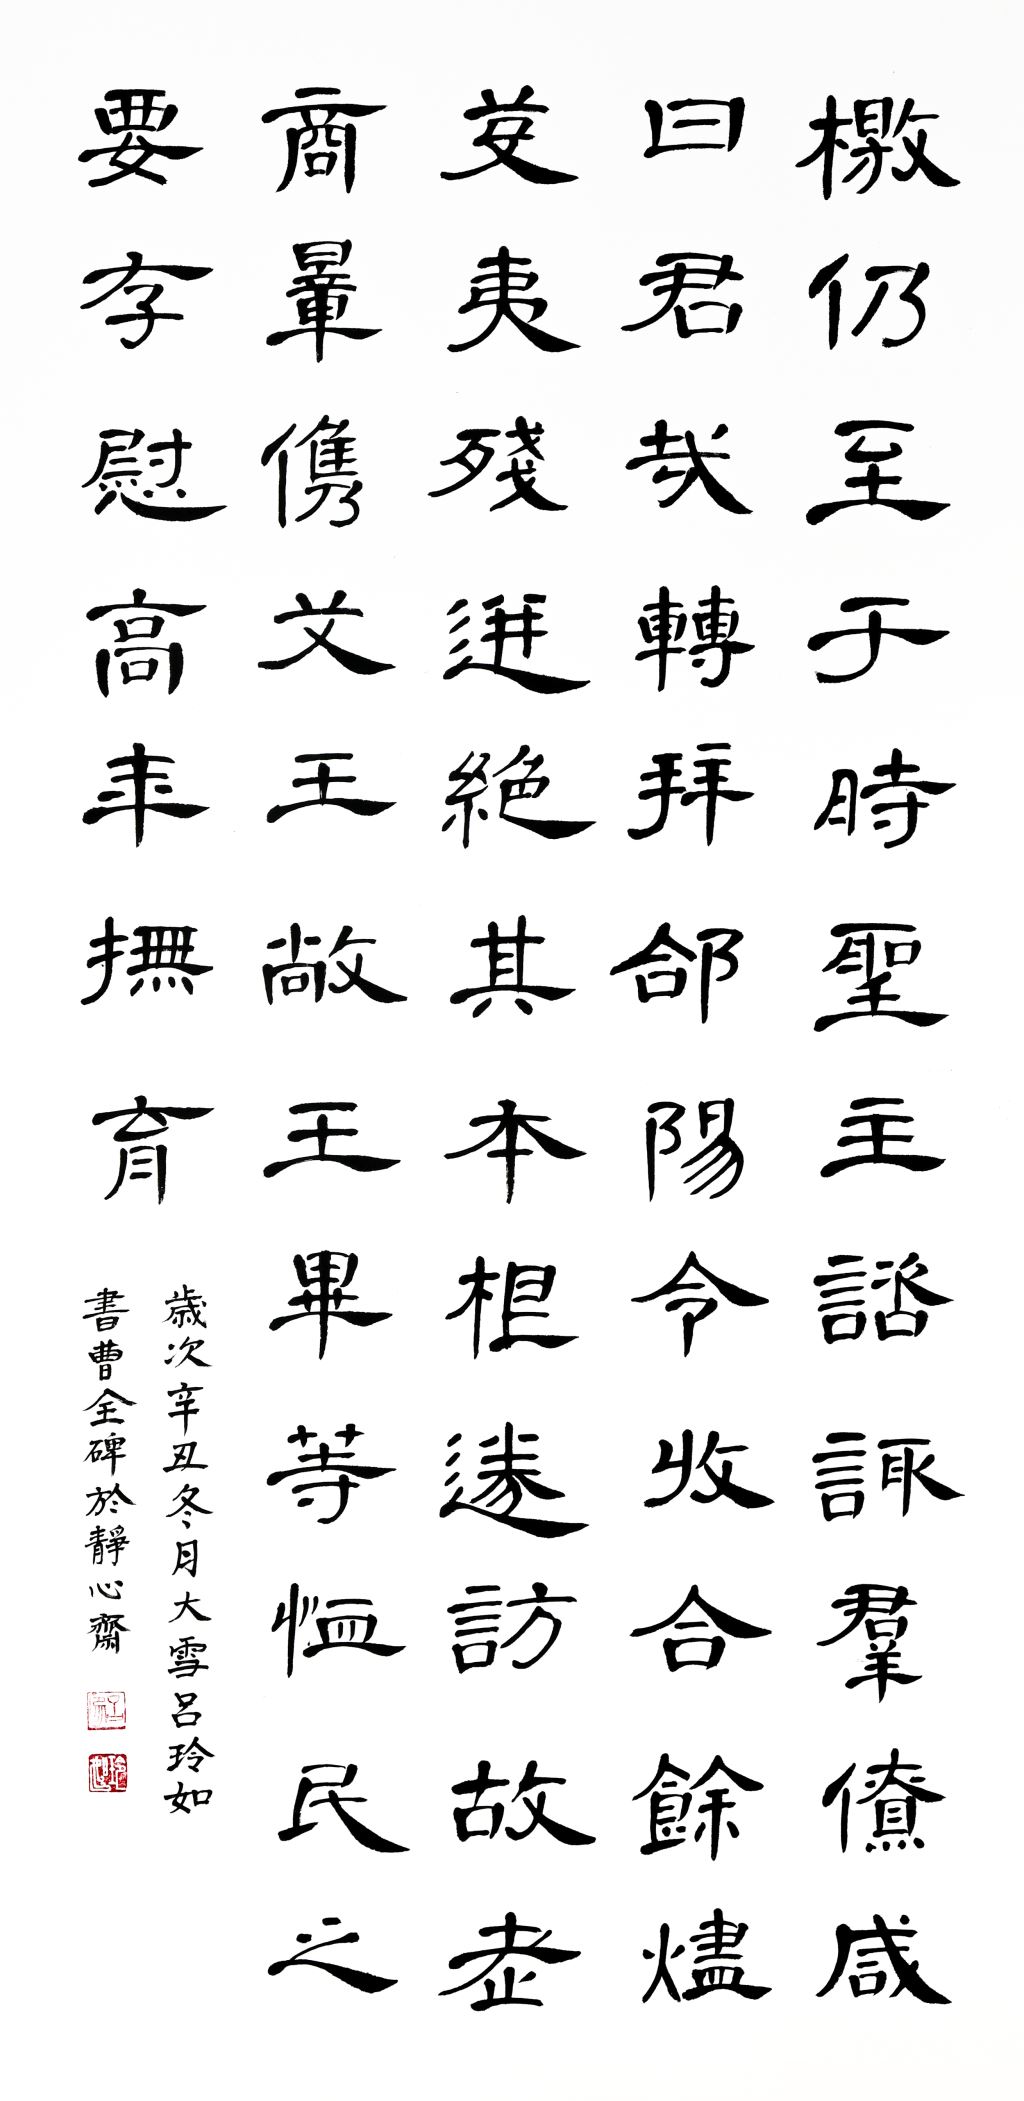 檄仍至于時聖主諮諏羣僚咸
曰君哉轉拜郃陽令收合餘燼
芟夷殘迸絕其本根遂訪故老
商暈儁艾王敞王畢等恤民之
要存慰高年撫育
歲次辛丑冬月大雪呂玲如
書曹全碑於靜心齋